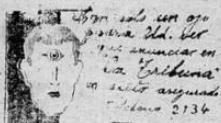 Con solo un ojo
podrá Ud. ver
que anunciar en
"La Tribuna"
un exito asegurado
Teléfono 2134